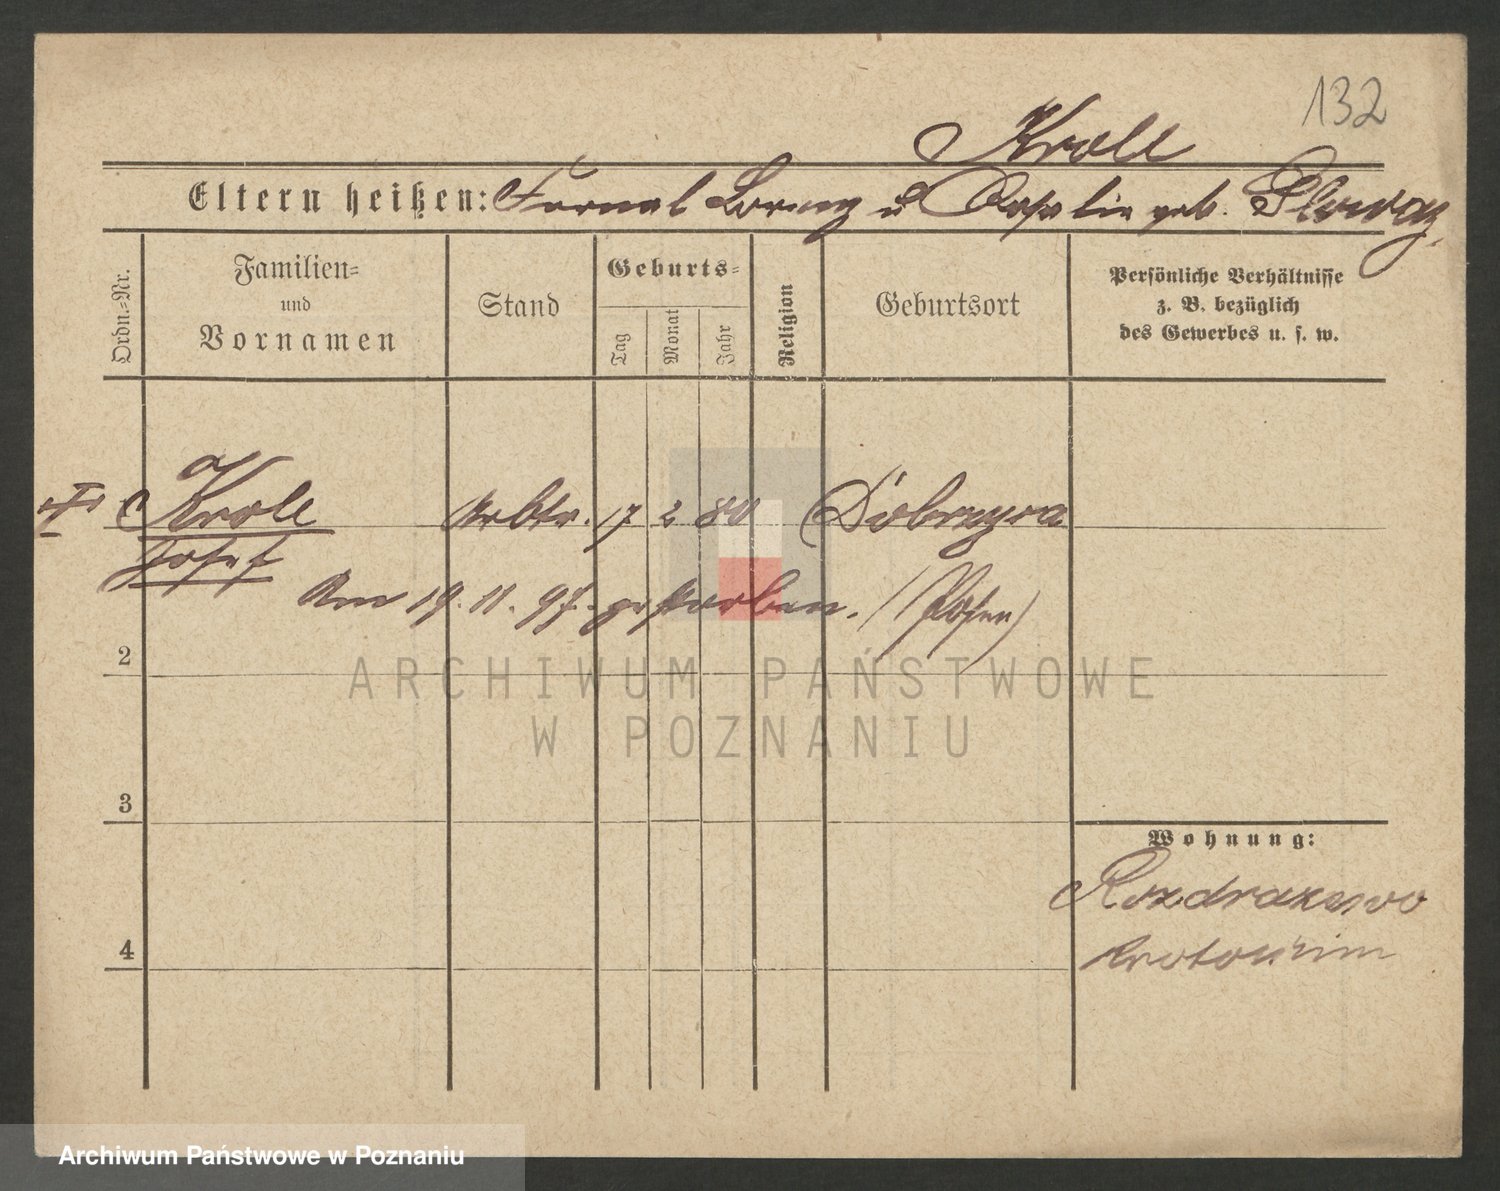 132
Kroll
Eltern heißen: Furmal Lorenz u Rosalie geb.
Ordn.-Nr.
Familien-
und
Vornamen
Stand
Geburts-
Tag
Monat
Jahr
Religion
Geburtsort
Persönliche Verhältnisse
z. B. bezüglich
des Gewerbes u. s. w.
Kroll Arbtr. 17 2 80 Dobrzyca
Josef
Am 19. 11. 97. gestorben. (Posen)
2
ARCHIWUM PAŃSTWOWE
W POZNANIU
3
Wohnung:
Rozdrazewo
Krotoschin
4
Archiwum Państwowe w Poznaniu